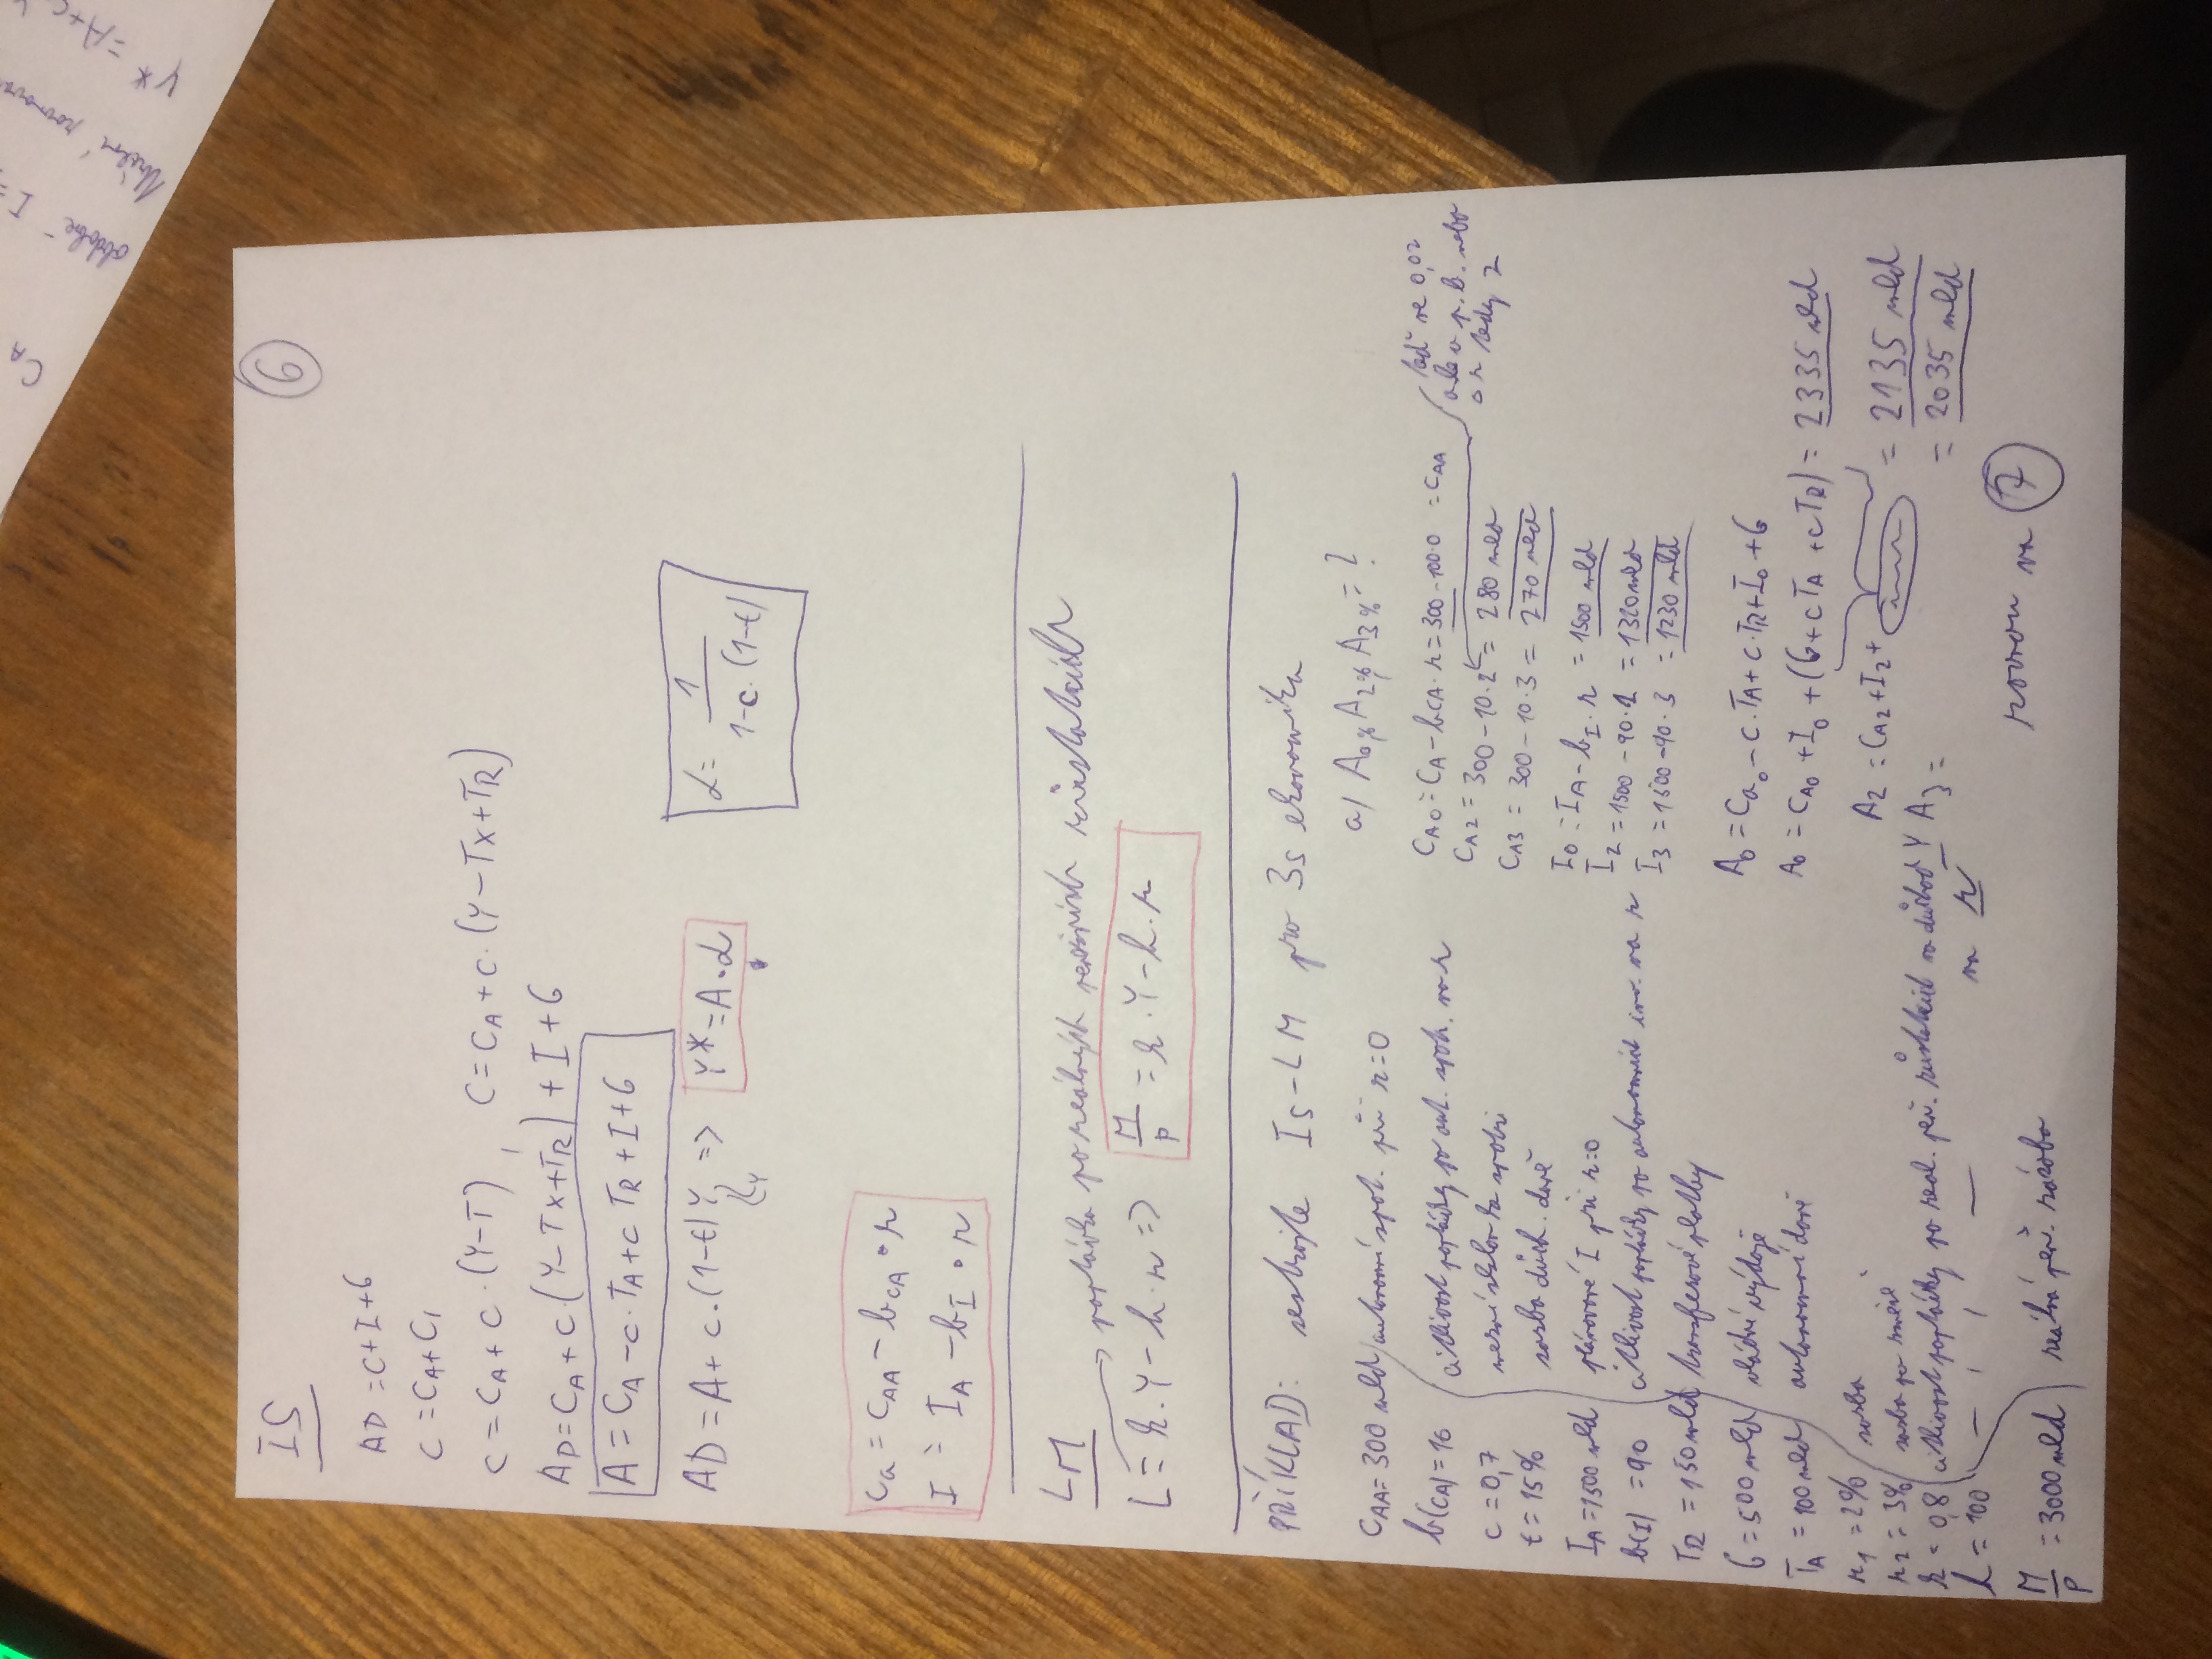 CA
obdobě I =
Y* = A + c
6
IS
AD = C + I + G
C = CA + C1
C = CA + c · (Y - T), C = CA + c · (Y - Tx + TR)
AD = CA + c · (Y - Tx + TR) + I + G
A = CA - c · TA + c TR + I + G
AD = A + c · (1-t) Y => Y* = A · α
α = 1 / (1 - c · (1-t))
Ca = CAA - bCA · r
I = IA - bI · r
LM
poptávka po reálných peněžních zůstatcích
L = k · Y - h · r => M/P = k · Y - h · r
PŘÍKLAD: sestrojte IS-LM pro 3s ekonomika
a) A0%, A2%, A3% = ?
CAA = 300 mld autonomní spot. při r=0
b(CA) = 10 citlivost poptávky po aut. spot. na r
c = 0,7 mezní sklon ke spotř.
t = 15% sazba důch. daně
IA = 1500 mld plánované I při r=0
b(I) = 90 citlivost poptávky po autonomních inv. na r
TR = 150 mld transferové platby
G = 500 mld vládní výdaje
TA = 100 mld autonomní daně
r1 = 2% sazba
r2 = 3% sazba po změně
k = 0,8 citlivost poptávky po reál. peň. zůstatcích na důchod Y
h = 100 — ı ı — na r
M/P = 3000 mld reálná peň. zásoba
CA0 = CA - bCA · r = 300 - 100·0 = CAA
CA2 = 300 - 10·2 = 280 mld
CA3 = 300 - 10·3 = 270 mld
teď ne 0,02
ale v p. b. nebo
tedy 2
I0 = IA - bI · r = 1500 mld
I2 = 1500 - 90·2 = 1320 mld
I3 = 1500 - 90·3 = 1230 mld
A0 = Ca0 - c · TA + c · TR + I0 + G
A0 = CA0 + I0 + (G + cTA + cTR) = 2335 mld
A2 = CA2 + I2 + = 2135 mld
A3 = = 2035 mld
rovnou na 7